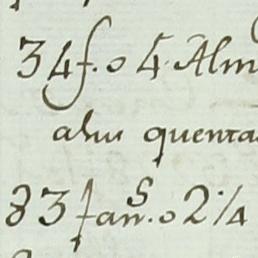 34 f. o 4 Alm
alvu quenta
83 fan.s o 2 1/4